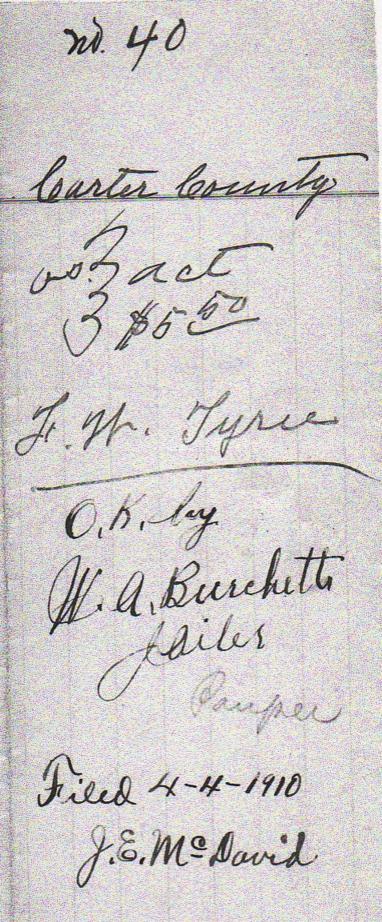 No. 40
Carter County
vs } act
$5 50
F. W. Tyree
O.K. by
W. A. Burchett
Jailer
Pauper
Filed 4-4-1910
J.E. McDavid